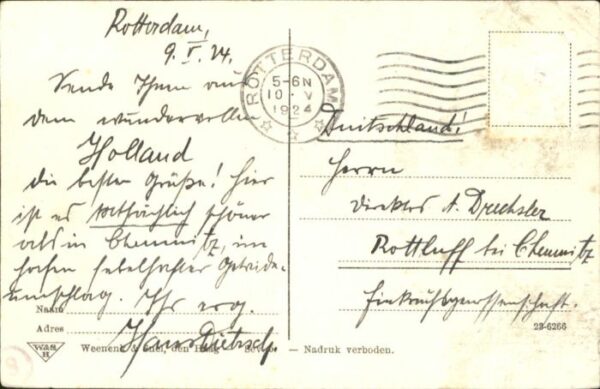 Rotterdam,
9. V. 24.
Sende Ihnen aus
dem wundervollen
Holland
die besten Grüße! Hier
ist es tatsächlich schöner
als in Chemnitz, im
fabelhafter Getreide-
umschlag. Ihr erg.
Hans Dietzsch.
Naam
Adres
Weenenk & Snel, den Haag
ROTTERDAM
5-6N
10 V
1924
Deutschland!
Herrn
Direktor A. Drechsler
Rottluff bei Chemnitz
Einkaufsgenossenschaft.
23-6266
— Nadruk verboden.